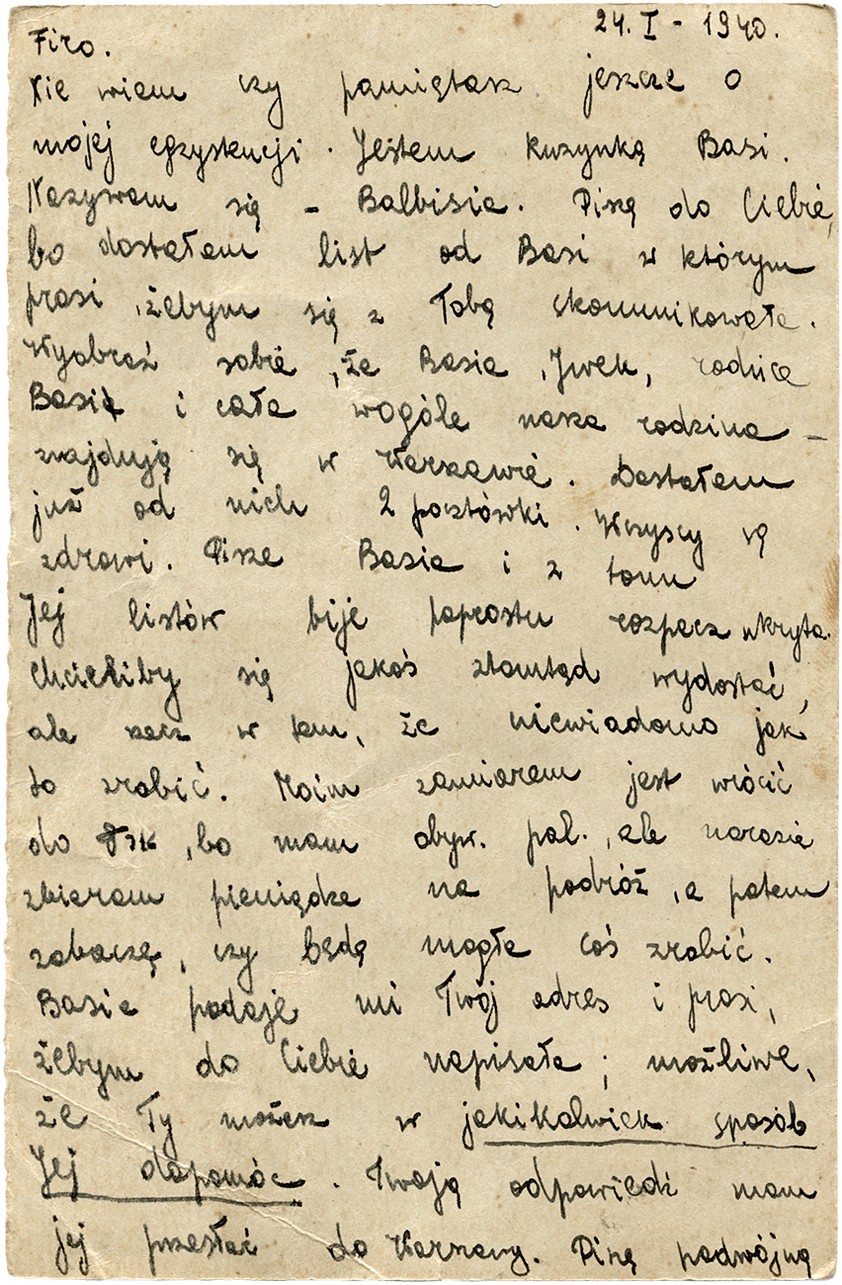 24. I - 1940.
Firo.
Nie wiem czy pamiętasz jeszcze o
mojej egzystencji. Jestem kuzynką Basi.
Nazywam się - Balbisia. Piszę do Ciebie,
bo dostałam list od Basi w którym
prosi, żebym się z Tobą skomunikowała.
Wyobraź sobie, że Basia, Iwek, rodzice
Basi i cała wogóle nasza rodzina -
znajdują się w Warszawie. Dostałam
już od nich 2 pocztówki. Wszyscy są
zdrowi. Pisze Basia i z tonu
Jej listów bije poprostu rozpacz ukryta.
Chcieliby się jakoś stamtąd wydostać,
ale rzecz w tem, że niewiadomo jak
to zrobić. Moim zamiarem jest wrócić
do, bo mam obyw. pal., ale narazie
zbieram pieniądze na podróż, a potem
zobaczę, czy będę mogła coś zrobić.
Basia podaje mi Twój adres i prosi,
żebym do Ciebie napisała; możliwe,
że Ty możesz w jakikolwiek sposób
Jej dopomóc. Twoją odpowiedź mam
jej przesłać do Warszawy. Piszę podwójną